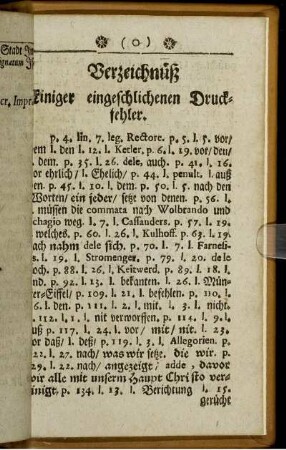 Stadt
( o )
Verzeichnüß
einiger eingeschlichenen Druck-
fehler.
p. 4. lin. 7. leg. Rectore. p. 5. l. 5. vor/
l. den l. 12. l. Kerler. p. 6. l. 19. vor/den/
dem. p. 35. l. 26. dele, auch. p. 41. l. 16.
vor ehrlich/ l. Ehelich/ p. 44. l. penult. l. auß
p. 45. l. 10. dem. p. 50. l. 5. nach den
Worten/ ein jeder/ setzt von denen. p. 56. l.
müssen die commata nach Wolbrando und
weg. l. 7. l. Cassanders. p. 57. l. 19.
welches. p. 60. l. 26. l. Kulhoff. p. 63. l. 19.
nach nahm dele sich. p. 70. l. 7. l. Farnesi-
l. 19. l. Stromenger. p. 79. l. 20. dele
p. 88. l. 26. l. Keitwerd. p. 89. l. 18. l.
p. 92. l. 13. l. bekanten. l. 26. l. Mün-
ster-Eiffel/ p. 109. l. 21. l. beschlen. p. 110. l.
6. l. den. p. 111. l. 2. l. mit. l. 3. l. nicht.
p. 112. l. 1. l. nit verworffen. p. 114. l. 9. l.
p. 117. l. 24. l. vor/ mit/ nit. l. 23.
vor daß/ l. deß/ p. 119. l. 3. l. Allegorien. p.
122. l. 27. nach/ was wir setze. die wir. p.
129. l. 22. nach/ angezeigt/ adde, davor
wir alle mit unserm Haupt Christo ver-
einigt, p. 134. l. 13. l. Berichtung l. 15.
gerücht